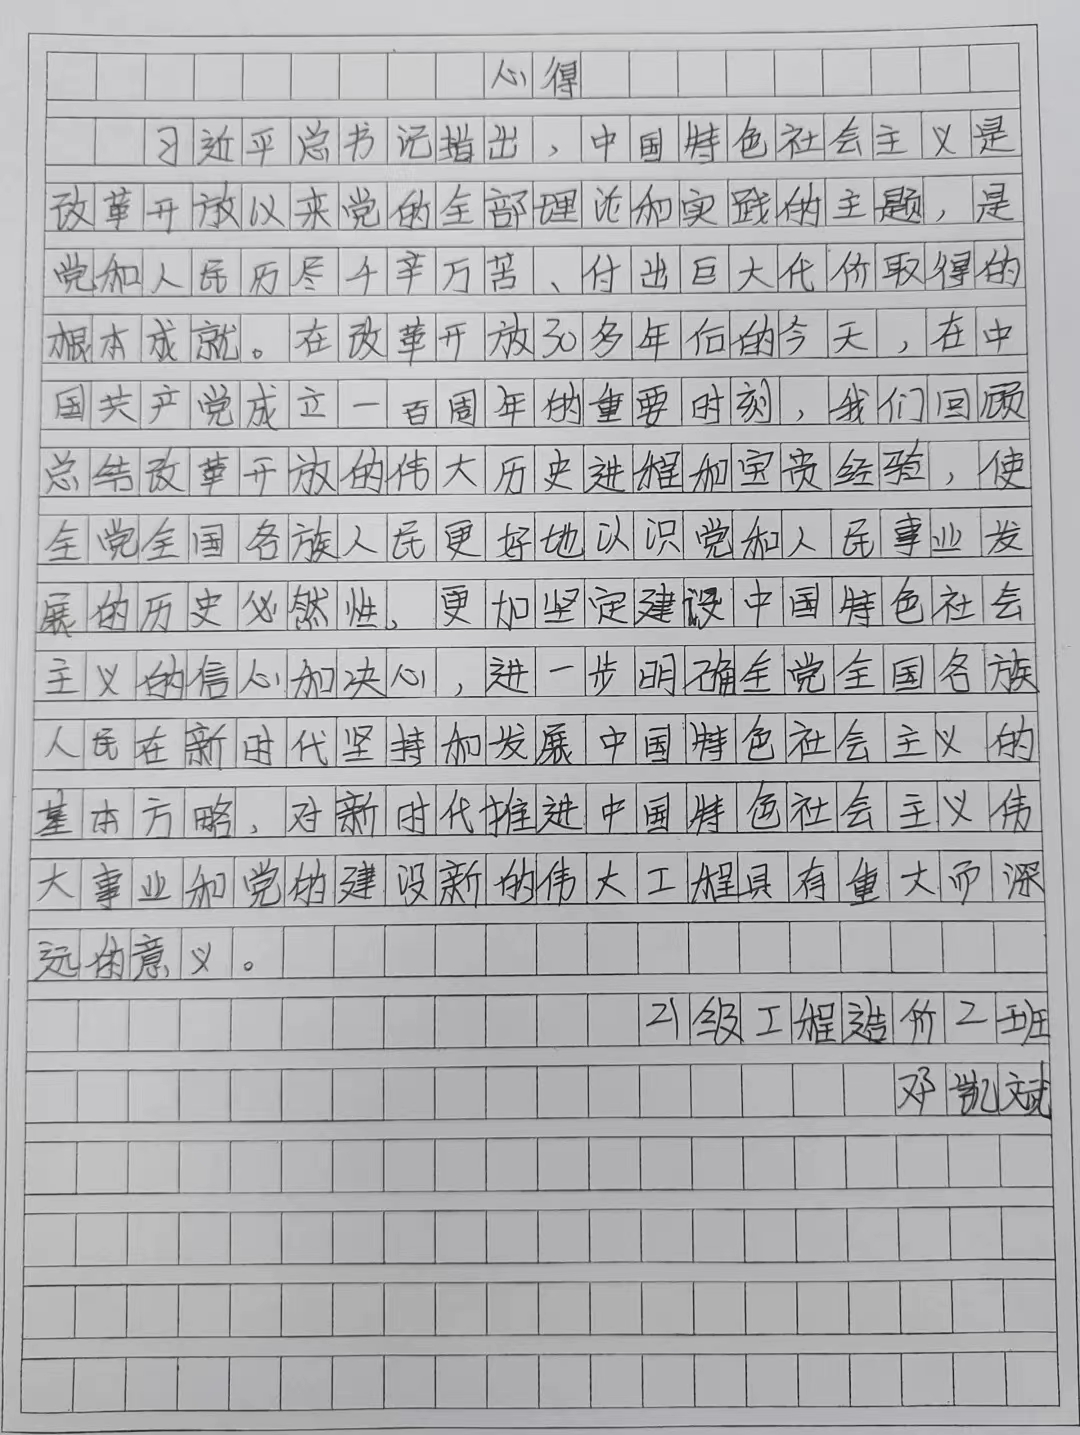 心得
习近平总书记指出，中国特色社会主义是
改革开放以来党的全部理论和实践的主题，是
党和人民历尽千辛万苦、付出巨大代价取得的
根本成就。在改革开放30多年后的今天，在中
国共产党成立一百周年的重要时刻，我们回顾
总结改革开放的伟大历史进程和宝贵经验，使
全党全国各族人民更好地认识党和人民事业发
展的历史必然性、更加坚定建设中国特色社会
主义的信心和决心，进一步明确全党全国各族
人民在新时代坚持和发展中国特色社会主义的
基本方略，对新时代推进中国特色社会主义伟
大事业和党的建设新的伟大工程具有重大而深
远的意义。
21级工程造价2班
邓凯斌